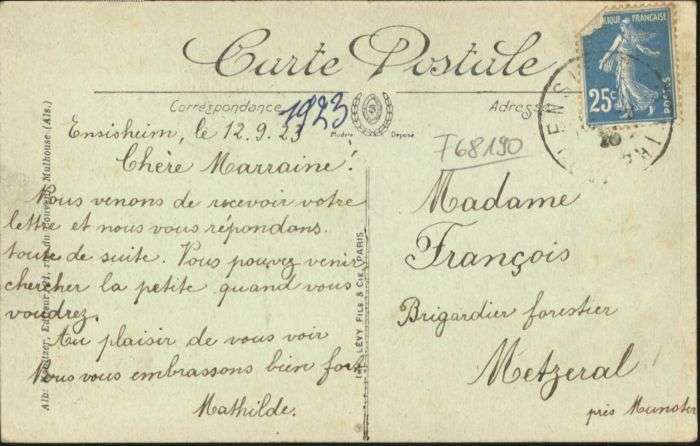 Carte Postale
Correspondance
Adresse
1923
Modèle Déposé
RÉPUBLIQUE FRANÇAISE
25c
POSTES
F68190
Ensisheim, le 12.9.23
Chère Marraine!
Nous venons de recevoir votre
lettre et nous vous répondons
toute de suite. Vous pouvez venir
chercher la petite quand vous
voudrez.
Au plaisir de vous voir
Nous vous embrassons bien fort
Mathilde.
Madame
François
Brigardier forestier
Metzeral
près Munster
LÉVY FILS & Cie, PARIS
Mulhouse (Als.)